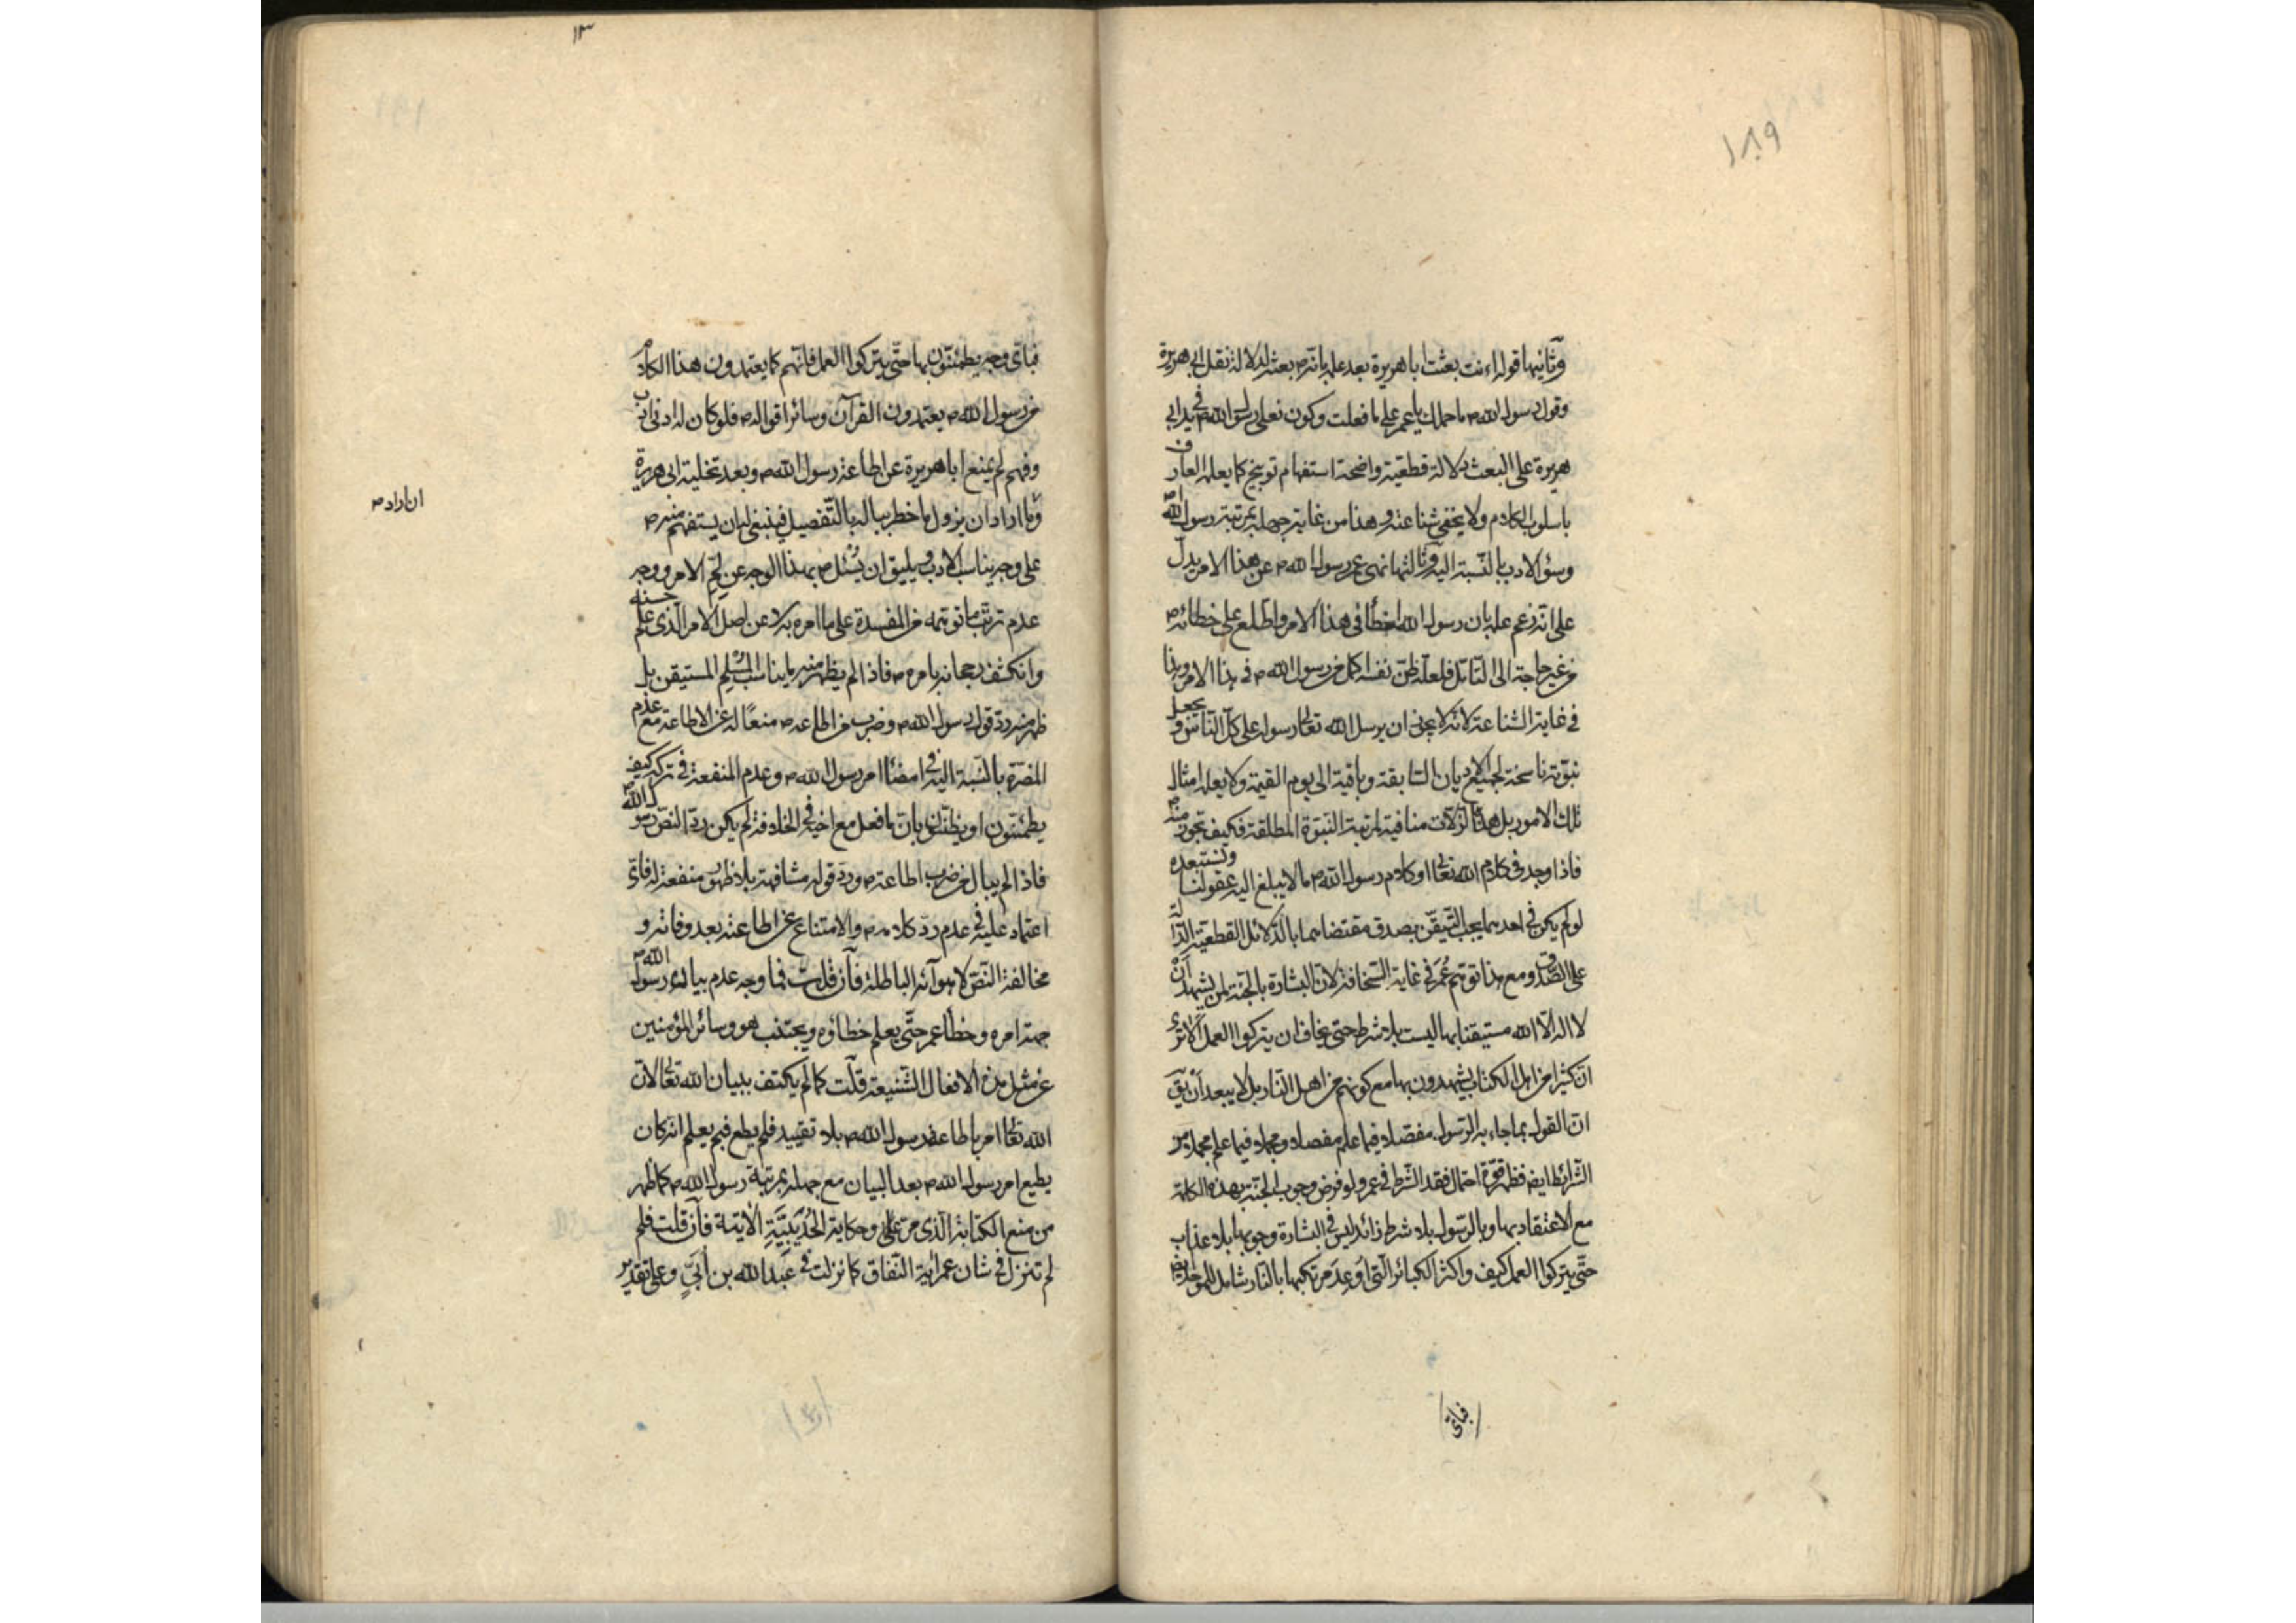 ١٨٩
وثانيها قوله اءنت بعثت ابا هريرة بعد علمه بانه ص بعثه لدلالة نقل ابي هريرة
وقول رسول الله ص ما حملك يا عمر على ما فعلت وكون نعلي رسول الله ص في يد ابي
هريرة على البعث دلالة قطعية واضحة استفهام توبيخ كما يعلمه العارف
باسلوب الكلام ولا يخفى شناعته وهذا من غاية جهله بمرتبة رسول الله ص
وسؤ الادب بالنسبة اليه وثالثها نهى عمر رسول الله ص عن هذا الامر يدل
على انه زعم علمه بان رسول الله اخطأ في هذا الامر واطلع على خطائه ص
من غير حاجة الى التأمل فلعله ظن نفسه اكمل من رسول الله ص في هذا الامر وهذا
في غاية الشناعة لانه لا يجوز ان يرسل الله تعالى رسوله على كل الناس ويجعل
نبوته ناسخة لجميع الاديان السابقة وباقية الى يوم القيمة ولا يعلمه امثال
تلك الامور بل هذه الزلات منافية لمرتبة النبوة المطلقة فكيف تجوز منه ص
فاذا وجد في كلام الله تعالى او كلام رسول الله ص ما لا يبلغ اليه عقولنا وتستبعده
لو لم يكن في احدهما يجب التيقن بصدق مقتضاهما بالدلائل القطعية الدالة
على الصدق ومع هذا توهم عمر في غاية السخافة لان البشارة بالجنة لمن يشهد ان
لا اله الا الله مستيقنا بها ليست بلا شرط حتى يخاف ان يتركوا العمل الا ترى
ان كثيرا من اهل الكتاب يشهدون بها مع كونهم من اهل النار بل لا يبعد ان يق
ان القول بما جاء به الرسول مفصلا فيما علم مفصلا ومجملا فيما علم مجملا من
الشرائط ايضا فظهر قوة احتمال فقد الشرط في عمر ولو فرض وجوب الجنة بهذه الكلمة
مع الاعتقاد بها وبالرسول بلا شرط زائد ليس في البشارة وجوبها بلا عذاب
حتى يتركوا العمل كيف واكثر الكبائر التي اوعد مرتكبها بالنار شامل للموحد ايضا
فباى
١٣
فباى وجه يطمئنون بها حتى يتركوا العمل فانهم كما يعتمدون هذا الكلام
من رسول الله ص يعتمدون القرآن وسائر اقواله ص فلو كان له ادنى ادب
وفهم لم يمنع ابا هريرة عن اطاعة رسول الله ص وبعد تخلية ابي هريرة
وما اراد ان يزول ما خطر بباله بالتفصيل فينبغي له ان يستفهم منه ص
ان اراد ص
على وجه يناسب الادب ويليق ان يسئل ص بهذا الوجه عن لم الامر ووجه
عدم ترتب ما توهمه من المفسدة على ما امره به لا عن اصل الامر الذي علم حسنه
وانكشف رجحانه بامره ص فاذا لم يظهر منه ما يناسب المسلم المستيقن بل
ظهر منه رد قول رسول الله ص وضرب من اطاعه ص منعا له عن الاطاعة مع عدم
المضرة بالنسبة اليه في امضاء امر رسول الله ص وعدم المنفعة في تركه كيف
يطمئنون او يظنون بان ما فعل مع اخيه في الخلافة لم يكن رد النص رسول الله ص
فاذا لم يبال من ضرب اطاعته ص ورد قوله مشافهة بلا ظهور منفعة له فاى
اعتماد عليه في عدم رد كلامه ص والامتناع عن اطاعته بعد وفاته و
مخالفة النص لاهوآئه الباطلة فان قلت فما وجه عدم بيان رسول الله ص
جهة امره وخطأ عمر حتى يعلم خطاؤه ويجتنب هو وسائر المؤمنين
عن مثل هذه الافعال الشنيعة قلت كما لم يكتف ببيان الله تعالى لان
الله تعالى امر باطاعة رسول الله ص بلا تقييد فلم يطع فبم يعلم انه كان
يطيع امر رسول الله ص بعد البيان مع جهله بمرتبة رسول الله ص كما ظهر
من منع الكتابة الذي مر على وحكاية الحديبية الآتية فان قلت فلم
لم تنزل في شان عمر آية النفاق كما نزلت في عبد الله بن ابي وعلى تقدير